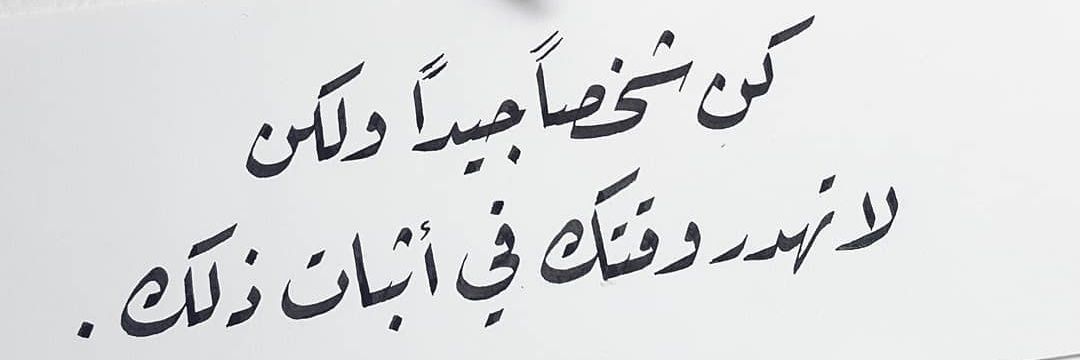 كن شخصاً جيداً ولكن
لا تهدر وقتك في أثبات ذلك .